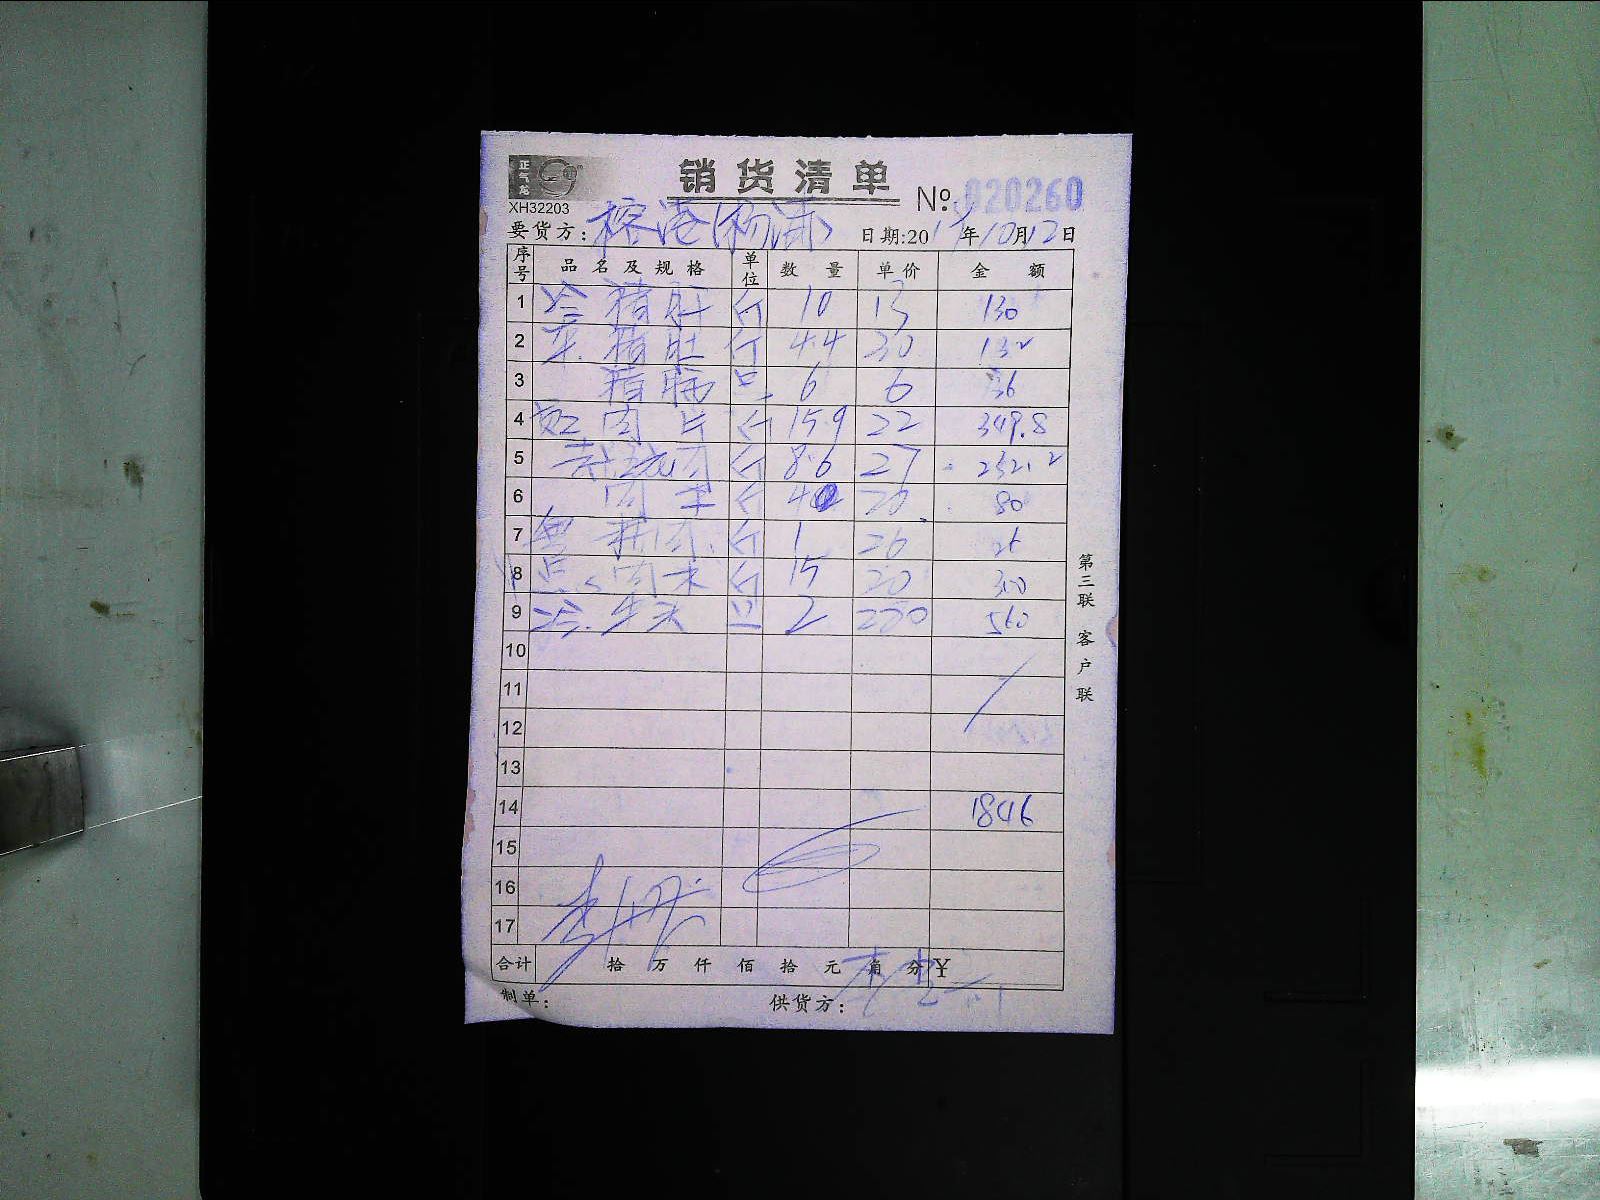 正气龙
XH32203
销货清单
No. 020260
要货方: 榕港(杨浦) 日期:2017年10月12日
序号 品名及规格 单位 数量 单价 金额
1 冷 猪肝 斤 10 13 130
2 猪肚 斤 4.4 30 132
3 猪脑 只 6 6 36
4 肉片 斤 15.9 22 349.8
5 肉 斤 8.6 27 232.2
6 肉 斤 4 20 80
7 肉 斤 1 26 26
8 肉末 斤 15 20 300
9 2 280 560
10
11
12
13
14 1846
15
16
17
合计 拾 万 仟 佰 拾 元 角 分 ¥
制单: 供货方:
第三联 客户联